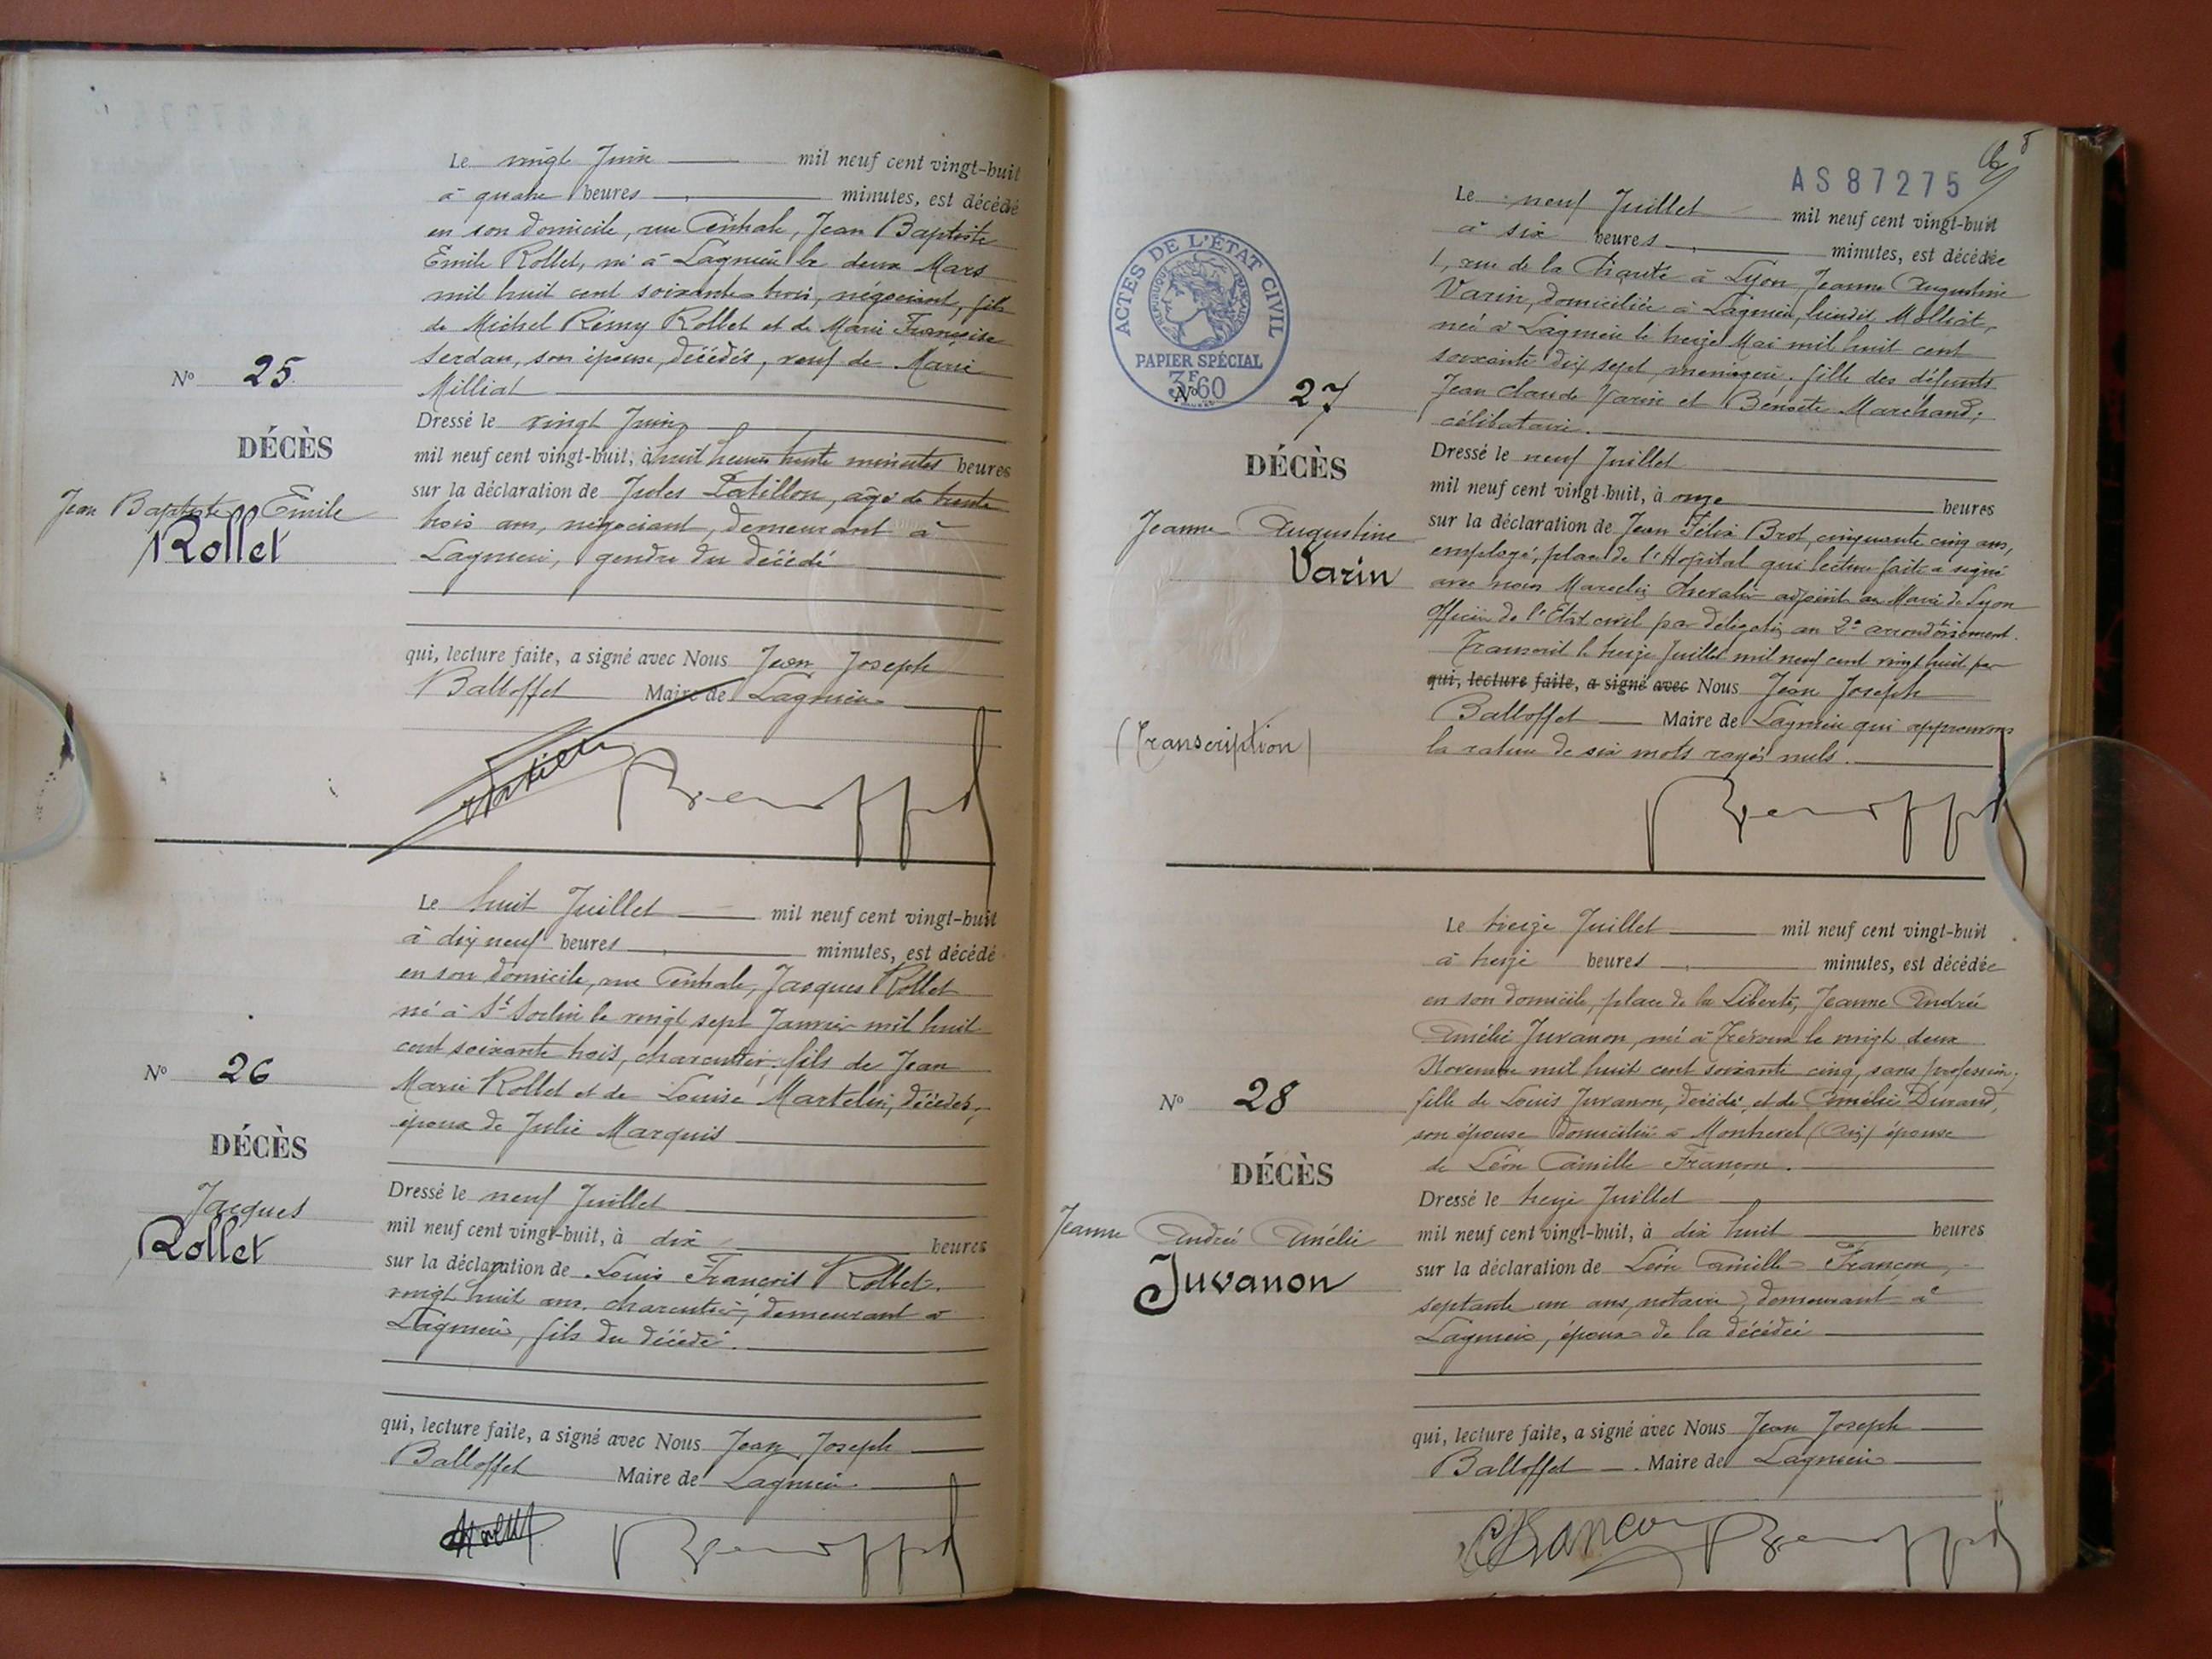 Le vingt Juin mil neuf cent vingt-huit
à quatre heures minutes, est décédé
en son domicile, rue Centrale, Jean Baptiste
Emile Rollet, né à Lagnieu le deux Mars
mil huit cent soixante trois, négociant, fils
de Michel Rémy Rollet et de Marie Françoise
Serdan, son épouse, décédés, veuf de Marie
Milliat
Nº 25
DÉCÈS
Jean Baptiste Emile
Rollet
Dressé le vingt Juin
mil neuf cent vingt-huit, à huit heures trente minutes heures
sur la déclaration de Jules Patillon, âgé de trente
trois ans, négociant, demeurant à
Lagnieu, gendre du décédé
qui, lecture faite, a signé avec Nous Jean Joseph
Balloffet Maire de Lagnieu
Le huit Juillet mil neuf cent vingt-huit
à dix neuf heures minutes, est décédé
en son domicile, rue Centrale, Jacques Rollet
né à St Sorlin le vingt sept Janvier mil huit
cent soixante trois, charcutier, fils de Jean
Marie Rollet et de Louise Martelin, décédés,
époux de Julie Marquis
Nº 26
DÉCÈS
Jacques
Rollet
Dressé le neuf Juillet
mil neuf cent vingt-huit, à dix heures
sur la déclaration de Louis François Rollet,
vingt huit ans, charcutier, demeurant à
Lagnieu, fils du décédé.
qui, lecture faite, a signé avec Nous Jean Joseph
Balloffet Maire de Lagnieu
8
AS87275
Le neuf Juillet mil neuf cent vingt-huit
à six heures minutes, est décédée
1, rue de la Charité à Lyon Jeanne Augustine
Varin, domiciliée à Lagnieu, lieudit Molliat,
née à Lagnieu le treize Mai mil huit cent
soixante dix sept, ménagère, fille des défunts
Jean Claude Varin et Benoite Marchand;
célibataire.
ACTES DE L'ÉTAT CIVIL
RÉPUBLIQUE FRANÇAISE
PAPIER SPÉCIAL
3F60
Nº 27
DÉCÈS
Jeanne Augustine
Varin
(Transcription)
Dressé le neuf Juillet
mil neuf cent vingt-huit, à onze heures
sur la déclaration de Jean Félix Brot, cinquante cinq ans,
employé, place de l'Hôpital qui lecture faite a signé
avec nous Marcelin Chevalier adjoint au Maire de Lyon
Officier de l'Etat civil par délégation au 2e arrondissement.
Transcrit le treize Juillet mil neuf cent vingt huit par
qui, lecture faite, a signé avec Nous Jean Joseph
Balloffet Maire de Lagnieu qui approuvons
la rature de six mots rayés nuls.
Le treize Juillet mil neuf cent vingt-huit
à treize heures minutes, est décédée
en son domicile, place de la Liberté, Jeanne Andrée
Amélie Juvanon, née à Trévoux le vingt deux
Novembre mil huit cent soixante cinq, sans profession,
fille de Louis Juvanon, décédé, et de Amélie Durand,
son épouse domiciliée à Montrevel (Ain) épouse
de Léon Camille Françon.
Nº 28
DÉCÈS
Jeanne Andrée Amélie
Juvanon
Dressé le treize Juillet
mil neuf cent vingt-huit, à dix huit heures
sur la déclaration de Léon Camille Françon,
septante un ans, notaire, demeurant à
Lagnieu, époux de la décédée
qui, lecture faite, a signé avec Nous Jean Joseph
Balloffet Maire de Lagnieu